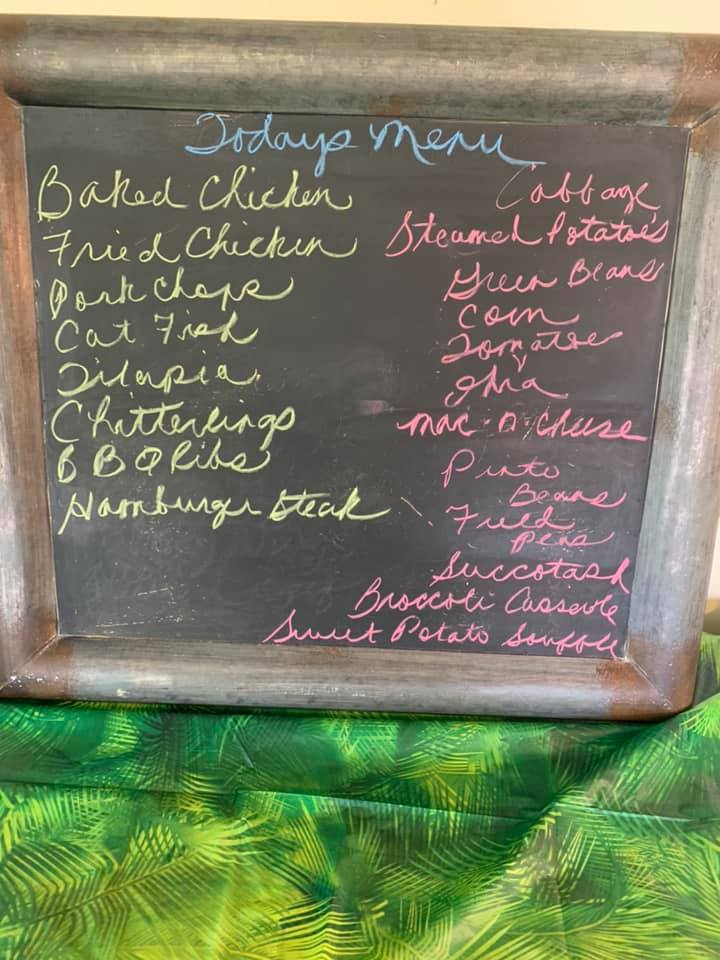 Todays Menu
Baked Chicken
Fried Chicken
Pork Chops
Cat Fish
Tilapia
Chitterlings
BBQ Ribs
Hamburger Steak
Cabbage
Steamed Potatoe's
Green Beans
Corn
Tomatoe
Okra
Mac-n-Cheese
Pinto
Beans
Fried
Peas
Succotash
Broccoli Casserole
Sweet Potato Souffle